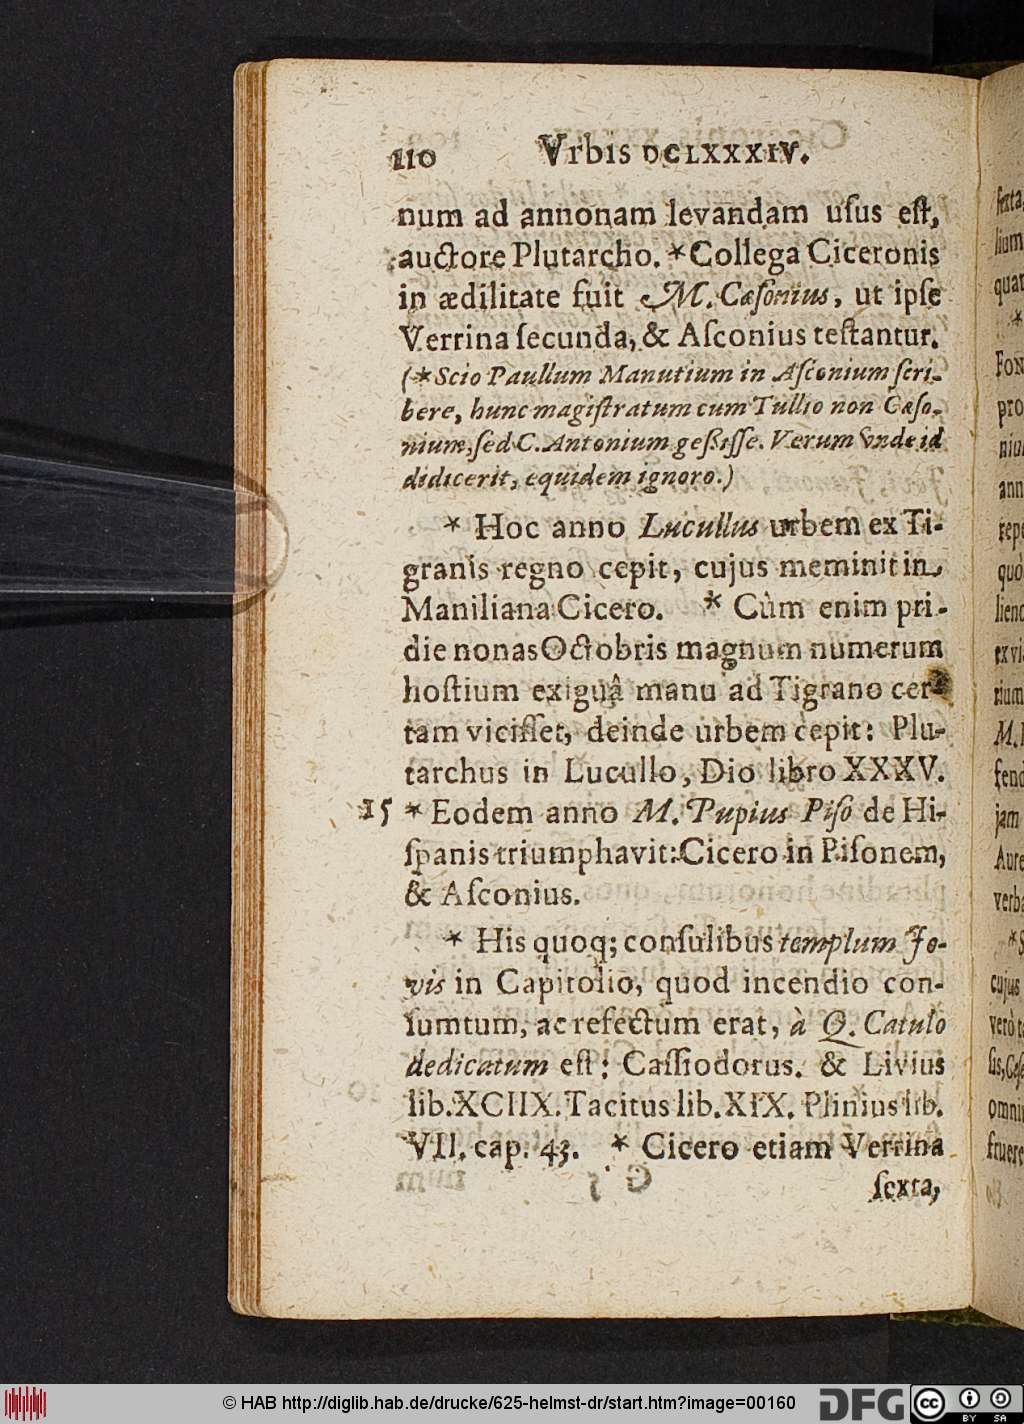 110 Vrbis DCLXXXIV.
num ad annonam levandam uſus eſt,
auctore Plutarcho. * Collega Ciceronis
in ædilitate fuit M. Cæſonius, ut ipſe
Verrina ſecunda, & Aſconius teſtantur.
(* Scio Paullum Manutium in Aſconium ſcri-
bere, hunc magiſtratum cum Tullio non Cæſo-
nium, ſed C. Antonium geſsiſſe. Verum unde id
didicerit, equidem ignoro.)
* Hoc anno Lucullus urbem ex Ti-
granis regno cepit, cujus meminit in
Maniliana Cicero. * Cùm enim pri-
die nonas Octobris magnum numerum
hoſtium exiguâ manu ad Tigrano cer-
tam viciſſet, deinde urbem cepit: Plu-
tarchus in Lucullo, Dio libro XXXV.
15 * Eodem anno M. Pupius Piſo de Hi-
ſpanis triumphavit: Cicero in Piſonem,
& Aſconius.
* His quoq; conſulibus templum Jo-
vis in Capitolio, quod incendio con-
ſumtum, ac refectum erat, à Q. Catulo
dedicatum eſt: Caſſiodorus. & Livius
lib. XCIIX. Tacitus lib. XIX. Plinius lib.
VII. cap. 43. * Cicero etiam Verrina
ſexta,
© HAB http://diglib.hab.de/drucke/625-helmst-dr/start.htm?image=00160
DFG
cc
BY SA